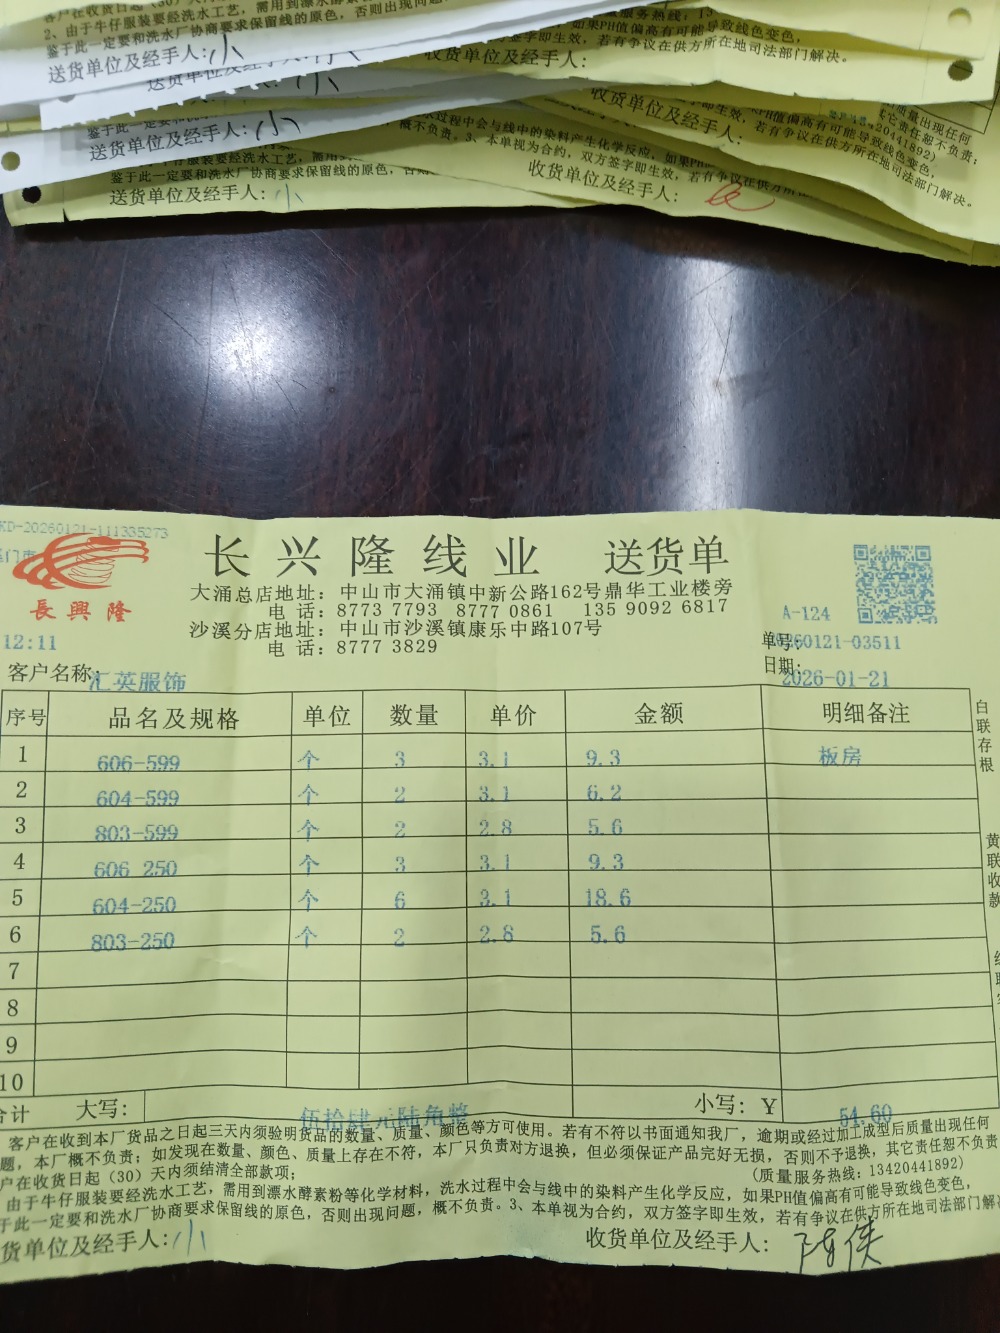 2、由于牛仔服装要经洗水工艺，需用到漂水酵素
鉴于此一定要和洗水厂协商要求保留线的原色，否则出现问题
送货单位及经手人：小
收货单位及经手人：
如果PH值偏高有可能导致线色变色，
方签字即生效，若有争议在供方所在地司法部门解决。
送货单位及经手人：小
收货单位及经手人：
送货单位及经手人：小
水过程中会与线中的染料产生化学反应，如果PH值偏高有可能导致线色变色，
概不负责。3、本单视为合约，双方签字即生效，若有争议在供方所在地司法部门解决。
牛仔服装要经洗水工艺，需用到
鉴于此一定要和洗水厂协商要求保留线的原色，否
送货单位及经手人：小
收货单位及经手人：
KD-20260121-111335273
长兴隆线业 送货单
長興隆
大涌总店地址：中山市大涌镇中新公路162号鼎华工业楼旁
电 话：8773 7793 8777 0861 135 9092 6817
沙溪分店地址：中山市沙溪镇康乐中路107号
电 话：8777 3829
A-124
12:11
单号：20260121-03511
日期：2026-01-21
客户名称：汇英服饰
序号 品名及规格 单位 数量 单价 金额 明细备注
1 606-599 个 3 3.1 9.3 板房
2 604-599 个 2 3.1 6.2
3 803-599 个 2 2.8 5.6
4 606-250 个 3 3.1 9.3
5 604-250 个 6 3.1 18.6
6 803-250 个 2 2.8 5.6
7
8
9
10
合计 大写：伍拾肆元陆角整 小写：￥ 54.60
白联存根
黄联收款
客户在收到本厂货品之日起三天内须验明货品的数量、质量、颜色等方可使用。若有不符以书面通知我厂，逾期或经过加工成型后质量出现任何
题，本厂概不负责；如发现在数量、颜色、质量上存在不符，本厂只负责对方退换，但必须保证产品完好无损，否则不予退换，其它责任恕不负责
户在收货日起（30）天内须结清全部款项；
（质量服务热线：13420441892）
由于牛仔服装要经洗水工艺，需用到漂水酵素粉等化学材料，洗水过程中会与线中的染料产生化学反应，如果PH值偏高有可能导致线色变色，
于此一定要和洗水厂协商要求保留线的原色，否则出现问题，概不负责。3、本单视为合约，双方签字即生效，若有争议在供方所在地司法部门解
货单位及经手人：小
收货单位及经手人：